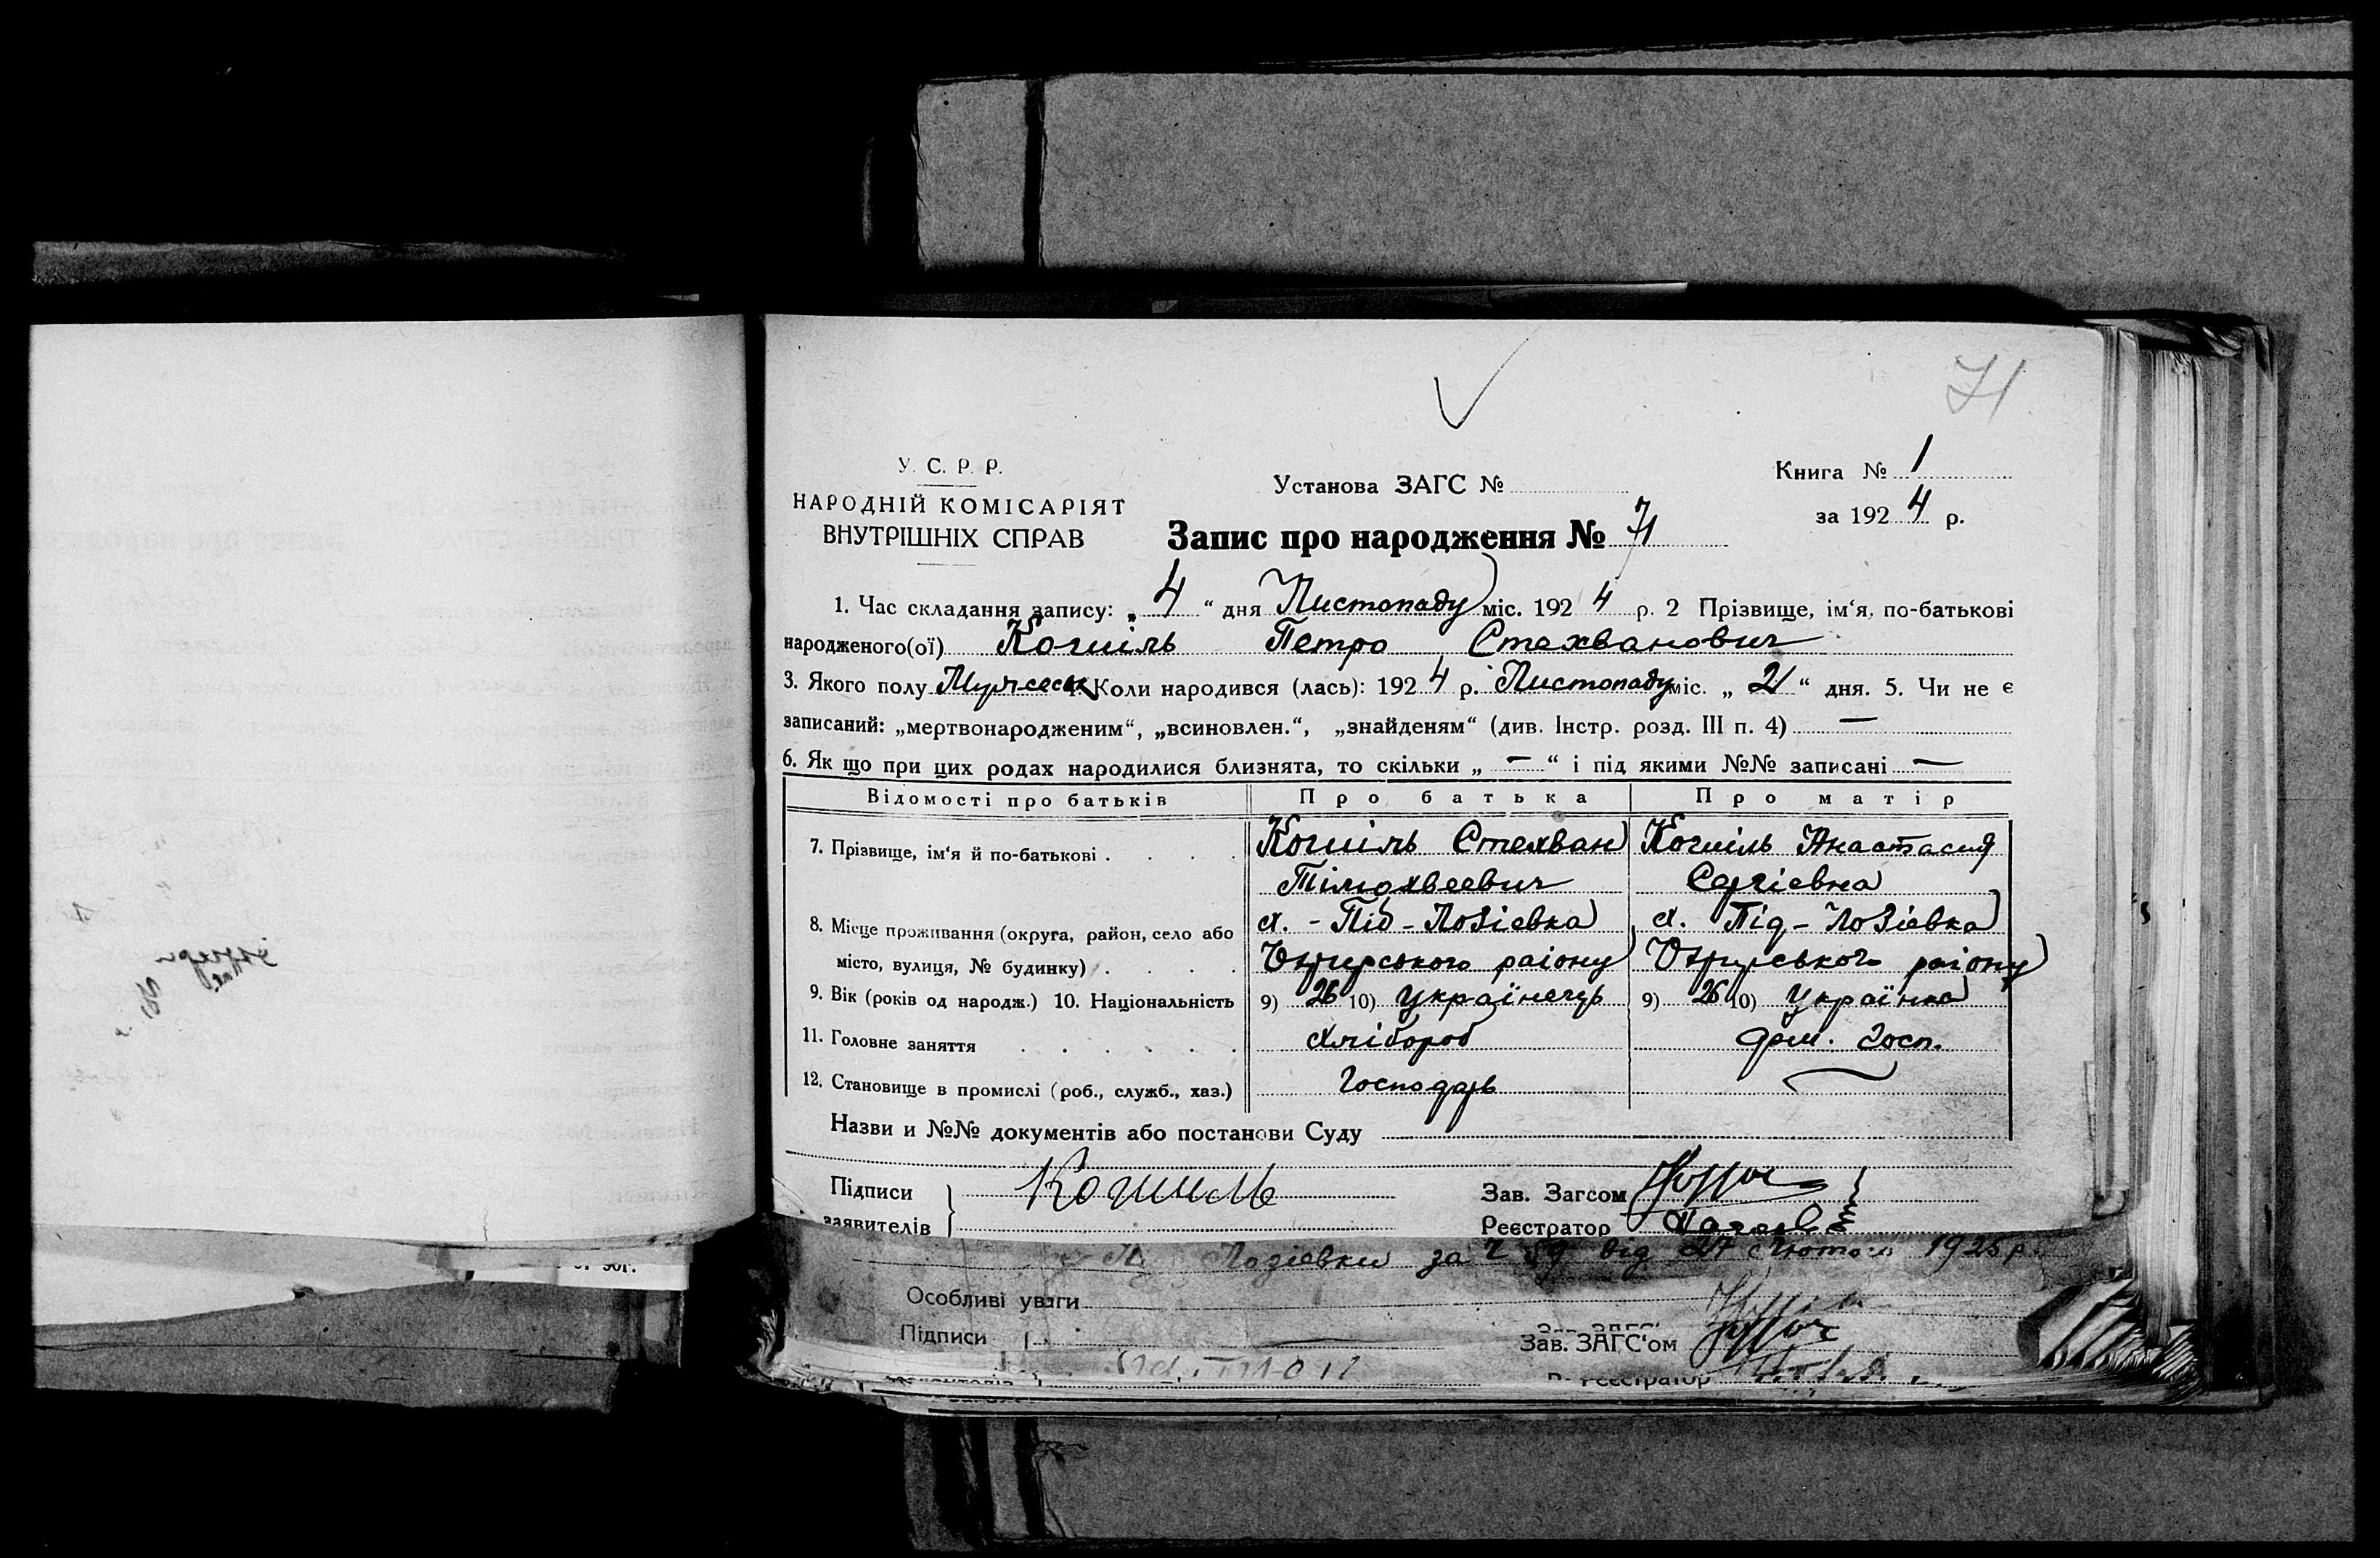 71
У. С. Р. Р.
НАРОДНІЙ КОМІСАРІЯТ
ВНУТРІШНІХ СПРАВ
Установа ЗАГС №
Книга № 1
за 1924 р.
Запис про народження № 71
1. Час складання запису: „ 4 “ дня Листопаду міс. 1924 р. 2 Прізвище, ім‘я, по-батькові
народженого(ої) Кошіль Петро Стехванович
3. Якого полу Мужеськ 4. Коли народився (лась): 1924 р. Листопаду міс. „ 21 “ дня. 5. Чи не є
записаний: „мертвонародженим“, „всиновлен.“, „знайденям“ (див. Інстр. розд. III п. 4) —
6. Як що при цих родах народилися близнята, то скільки „ — “ і під якими №№ записані —
Відомості про батьків Про батька Про матір
7. Прізвище, ім‘я й по-батькові . . . . Кошіль Стехван Кошіль Анастасия
Тімохвеевич Сергієвна
8. Місце проживання (округа, район, село або х. - Під - Лозіевка х. Під - Лозіевка
місто, вулиця, № будинку) . . . . району району
9. Вік (років од народж.) 10. Національність 9) 26 10) Українець 9) 26 10) Українка
11. Головне заняття . . . . . . Хлібороб дом. госп.
12. Становище в промислі (роб., служб., хаз.) Господарь
Назви и №№ документів або постанови Суду
Підписи Кошиль Зав. Загсом
заявителів Реєстратор
Лозіевки за від 27 Лютого 1925 р.
Особливі уваги
Підписи Зав. ЗАГС‘ом
Реєстратор